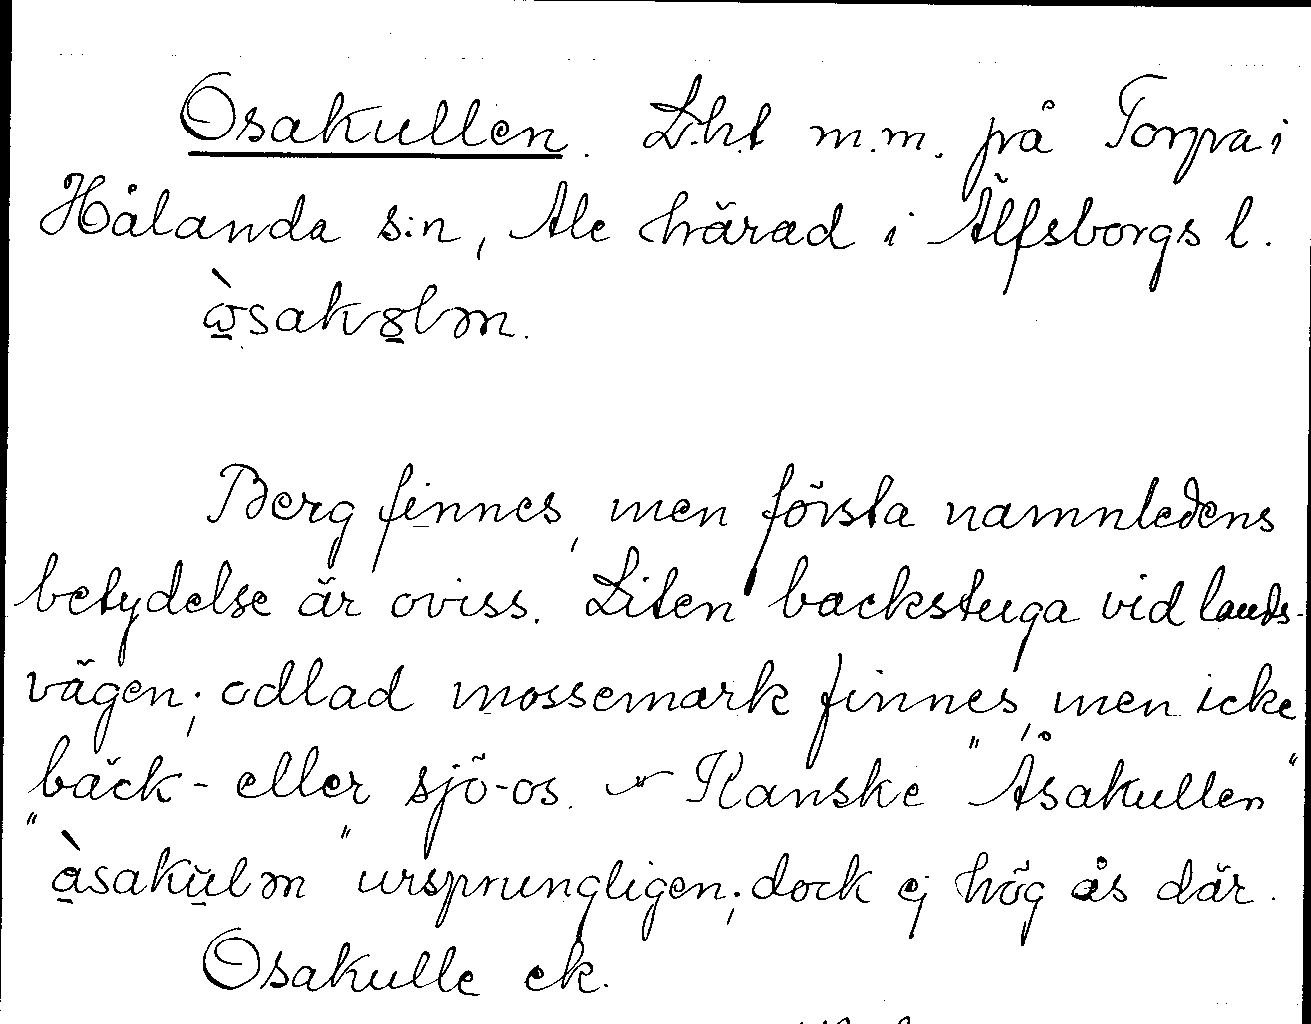 Osakullen. L.h.t m.m. på Torpa i
Hålanda s:n, Ale härad i Älfsborgs l.
Berg finnes, men första namnledens
betydelse är oviss. Liten backstuga vid lands-
vägen; odlad mossemark finnes, men icke
bäck- eller sjö-os. – Kanske "Åsakullen"
"àsakulən" ursprungligen; dock ej hög ås där.
Osakulle ek.